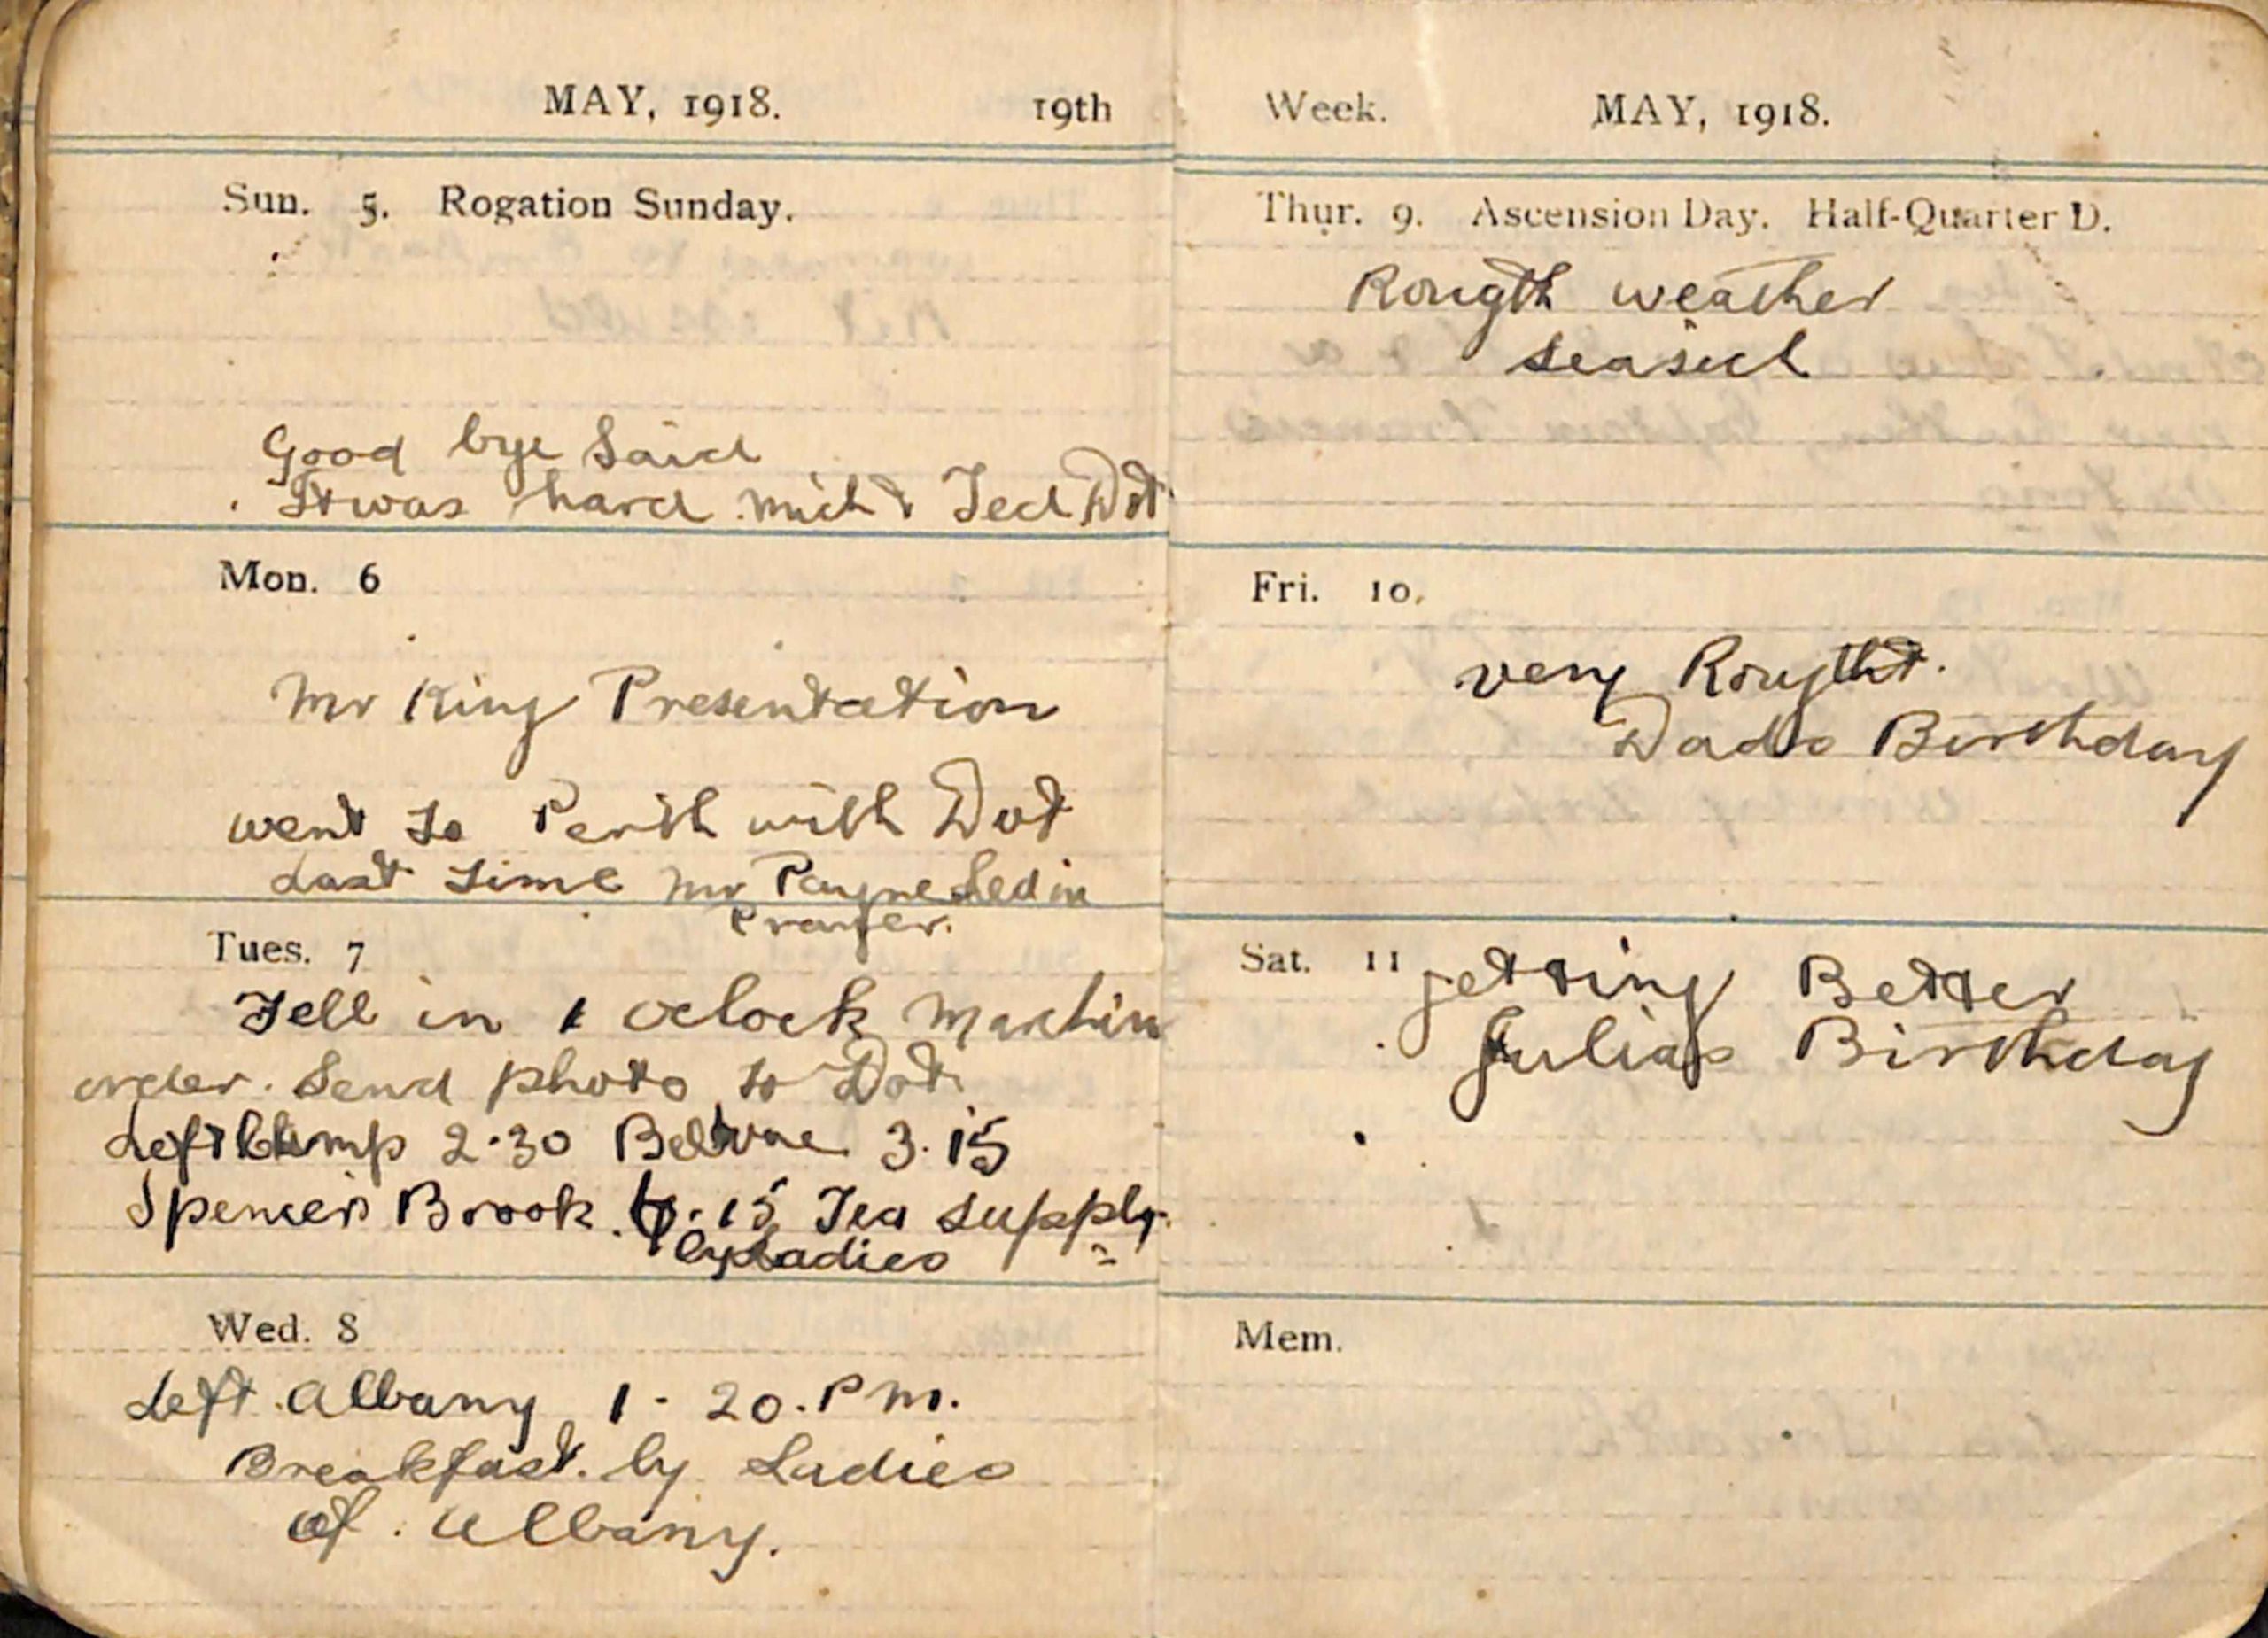 MAY, 1918. 19th
Sun. 5. Rogation Sunday.
Good bye Said
It was hard Ted Dot
Mon. 6
Mr King Presentation
went to Perth with Dot
Last time Mr Payne Led in
Prayer.
Tues. 7
Fell in 1 oclock Marchin
order. Send photo to Dot
Left Camp 2.30 Belvue 3.15
Spencers Brook .15 Tea supply
by Ladies
Wed. 8
Left Albany 1 - 20. Pm.
Breakfast. by Ladies
of. Albany.
Week. MAY, 1918.
Thur. 9. Ascension Day. Half-Quarter D.
Rougth weather
seasick
Fri. 10.
very Rougtht.
Dads Birthday
Sat. 11 getting Better
Julias Birthday
Mem.